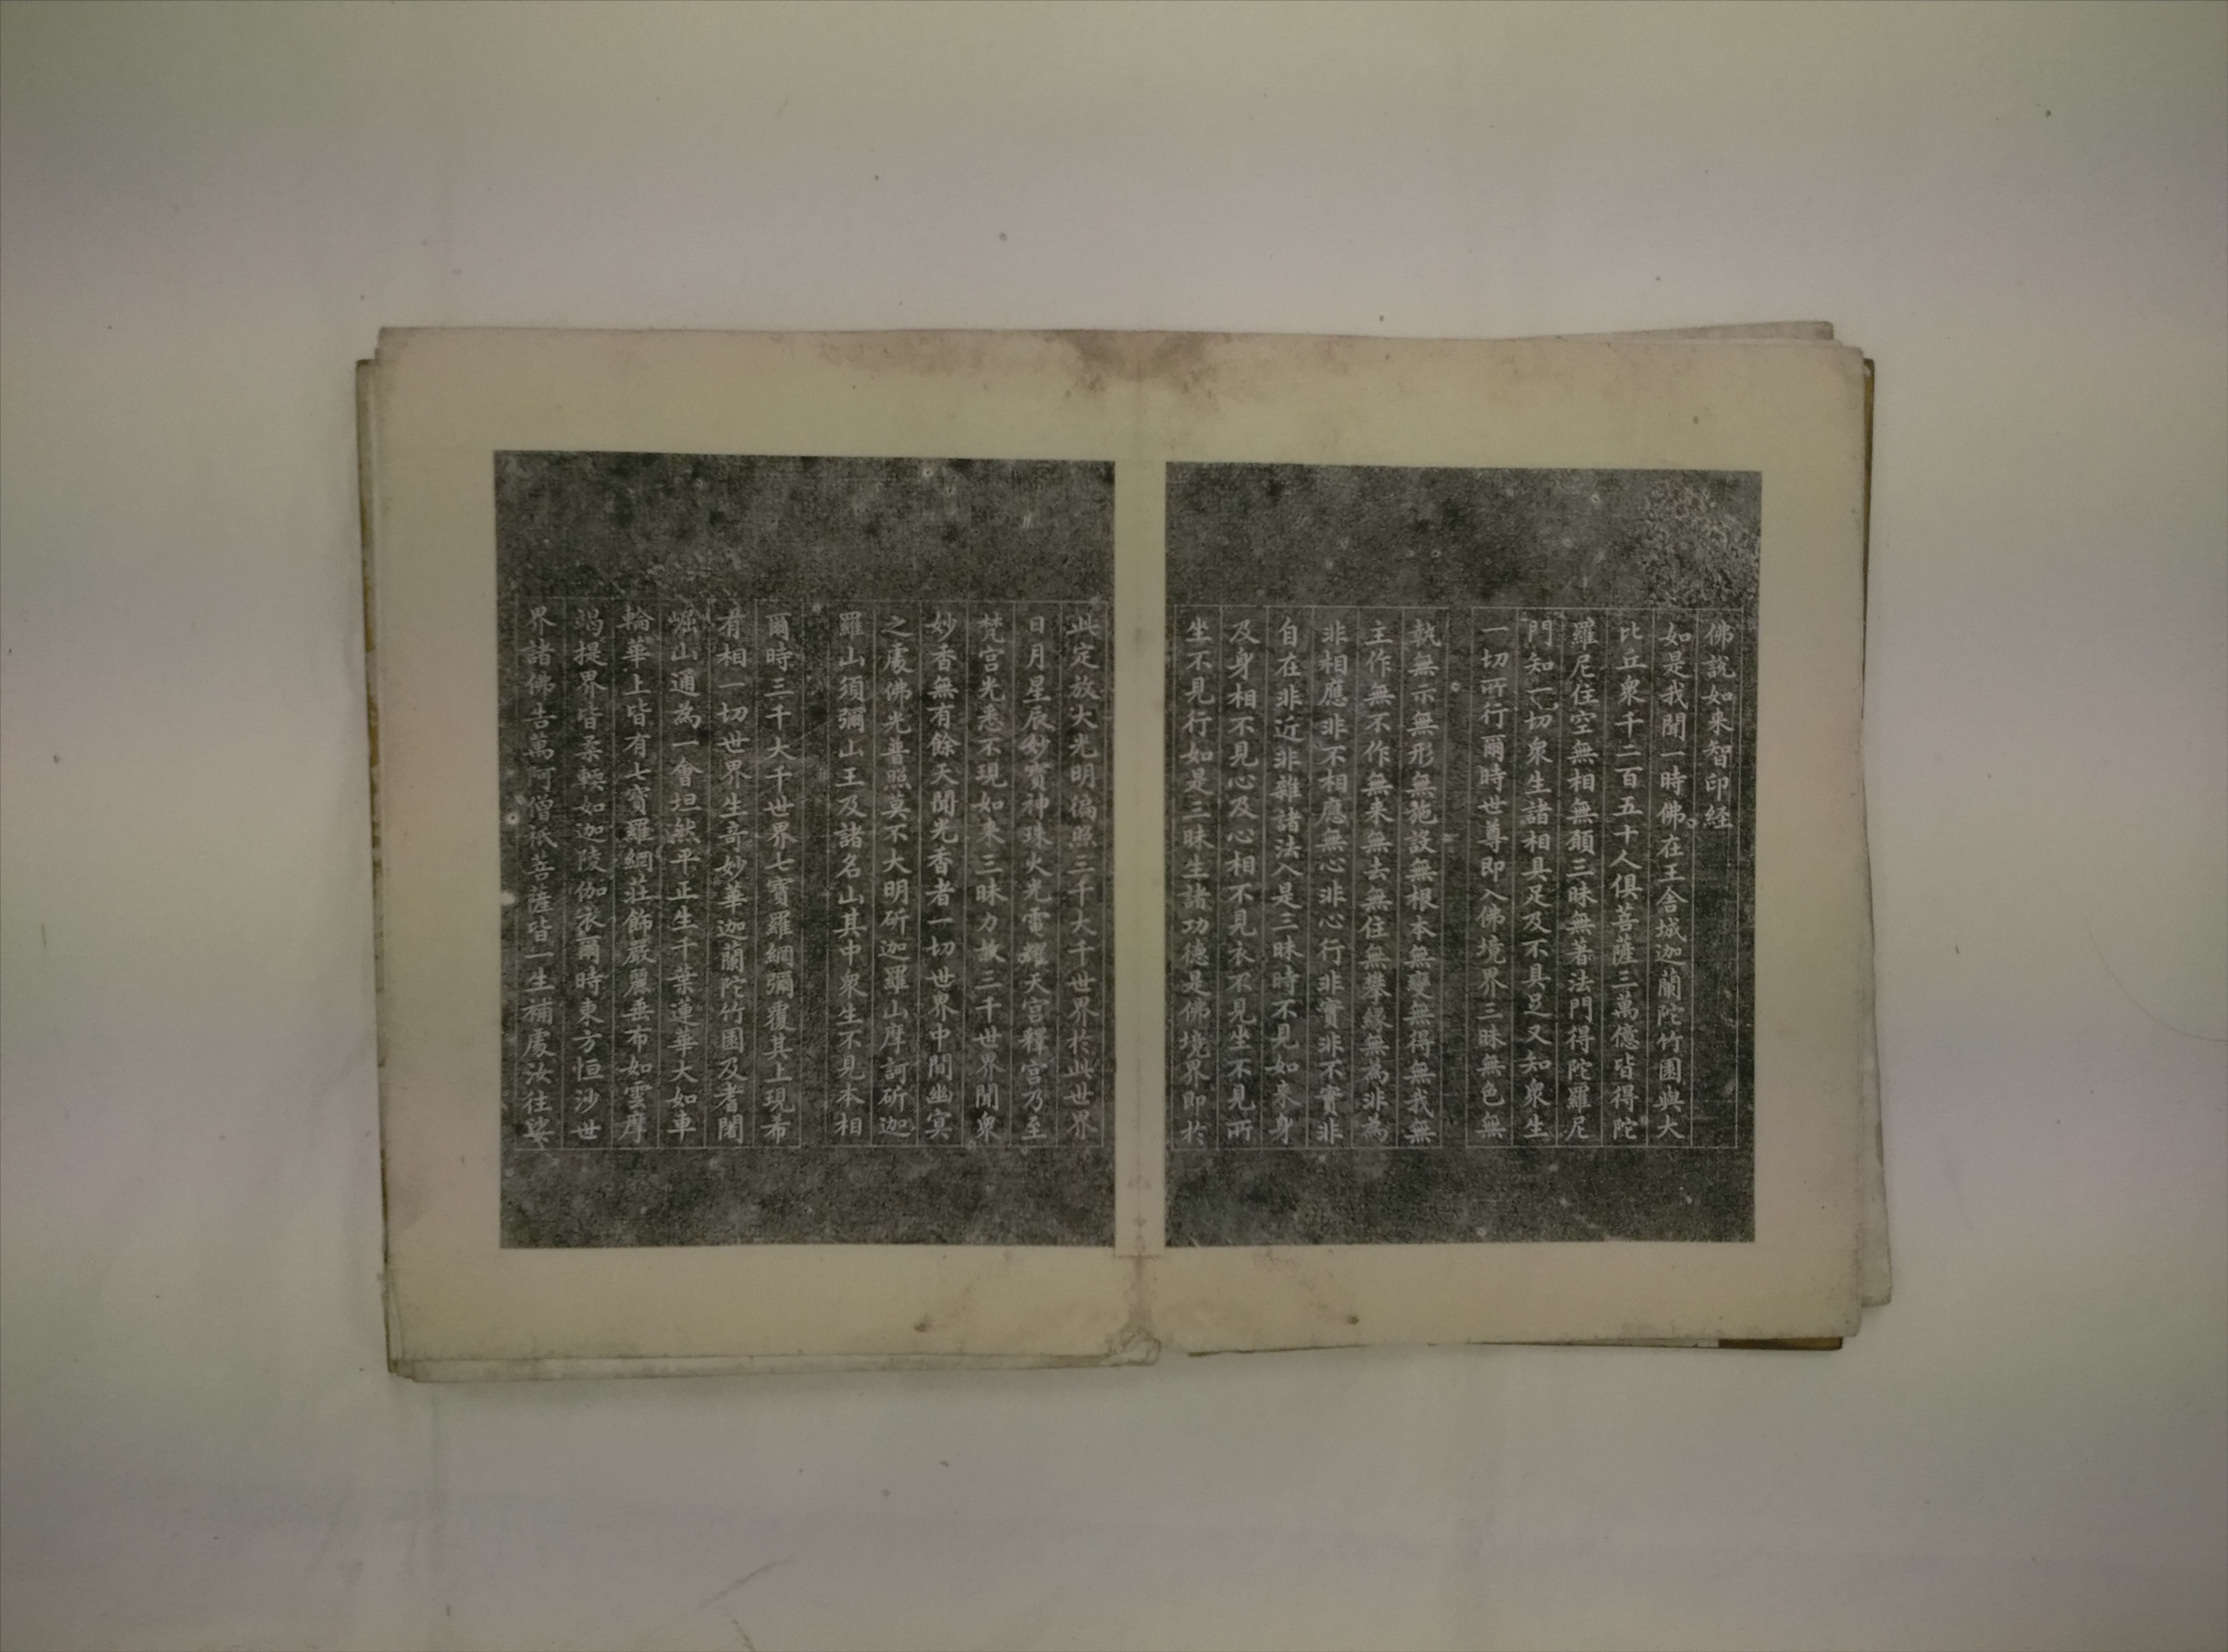 佛說如来智印経
如是我聞一時佛在王舎城迦蘭陀竹園與大
比丘衆千二百五十人俱菩薩三萬億皆得陀
羅尼住空無相無願三昧無著法門得陀羅尼
門知一切衆生諸相具足及不具足又知衆生
一切所行爾時世尊即入佛境界三昧無色無
執無示無形無施設無根本無變無得無我無
主作無不作無来無去無住無攀緣無為非為
非相應非不相應無心非心行非實非不實非
自在非近非離諸法入是三昧時不見如来身
及身相不見心及心相不見衣不見坐不見所
坐不見行如是三昧生諸功德是佛境界即於
此定放大光明徧照三千大千世界於此世界
日月星辰妙寶神珠火光電耀天宫釋宫乃至
梵宫光悉不現如来三昧力故三千世界聞衆
妙香無有餘天聞光香者一切世界中間幽冥
之處佛光普照莫不大明斫迦羅山摩訶斫迦
羅山須彌山王及諸名山其中衆生不見本相
爾時三千大千世界七寶羅網彌覆其上現希
有相一切世界生奇妙華迦蘭陀竹園及耆闍
崛山通為一會坦然平正生千葉蓮華大如車
輪華上皆有七寶羅網莊飾嚴麗垂布如雲摩
竭提界皆柔輭如迦陵伽衣爾時東方恒沙世
界諸佛告萬阿僧祇菩薩皆一生補處汝往娑